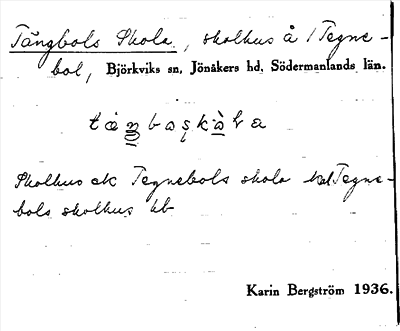 Tängbols Skola, skolhus å 1 Tegne-
bol, Björkviks sn, Jönåkers hd, Södermanlands län.
Skolhus ek Tegnebols skola kal Tegne-
bols skolhus hb
Karin Bergström 1936.